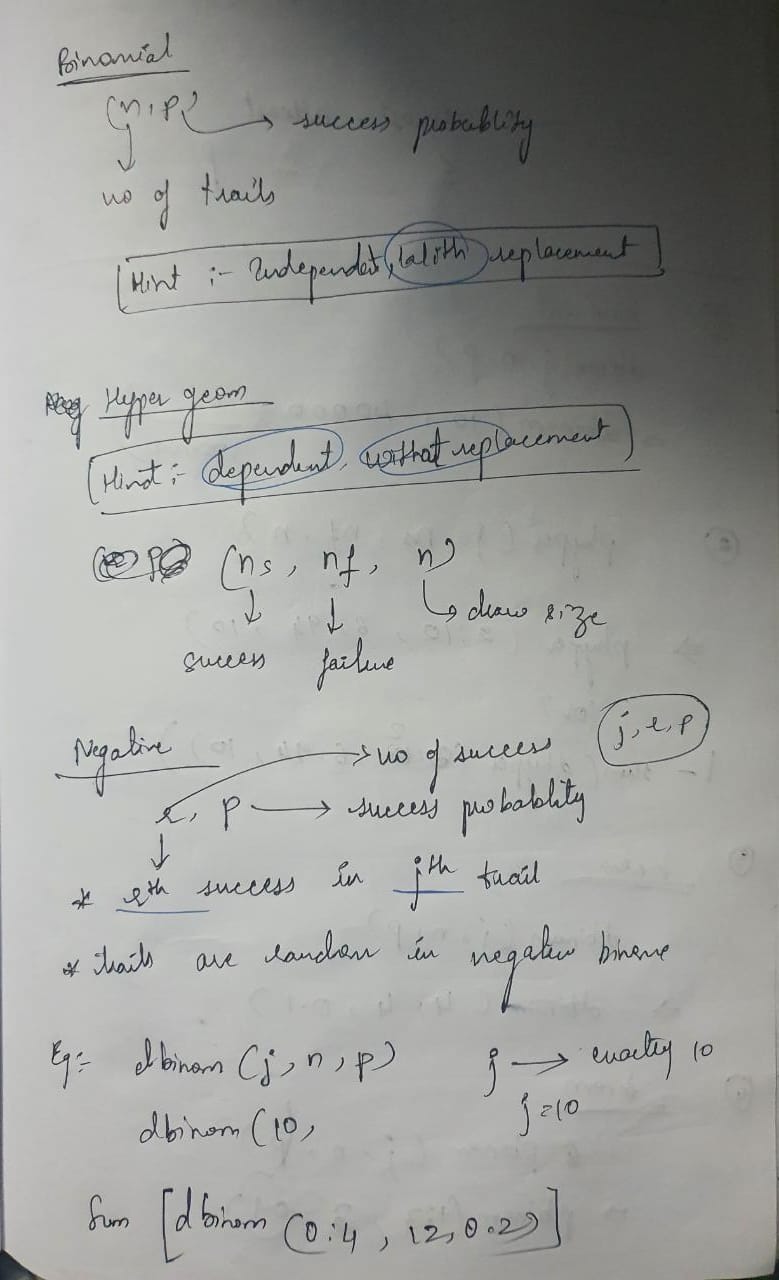 Binomial
(n, p) → success probablity
↓
no of trails
[Hint :- Independet, (with) replacement]
Hyper geom
[Hint :- dependent, without replacement]
(ns, nf, n)
↓ ↓ ↳ draw size
success failure
Negative → no of success (j, r, p)
r, p → success probablity
↓
* rth success in jth trail
* trails are random in negative
Eg:- dbinom (j, n, p) j → exactly 10
dbinom (10, j=10
Sum [dbinom (0:4, 12, 0.2)]